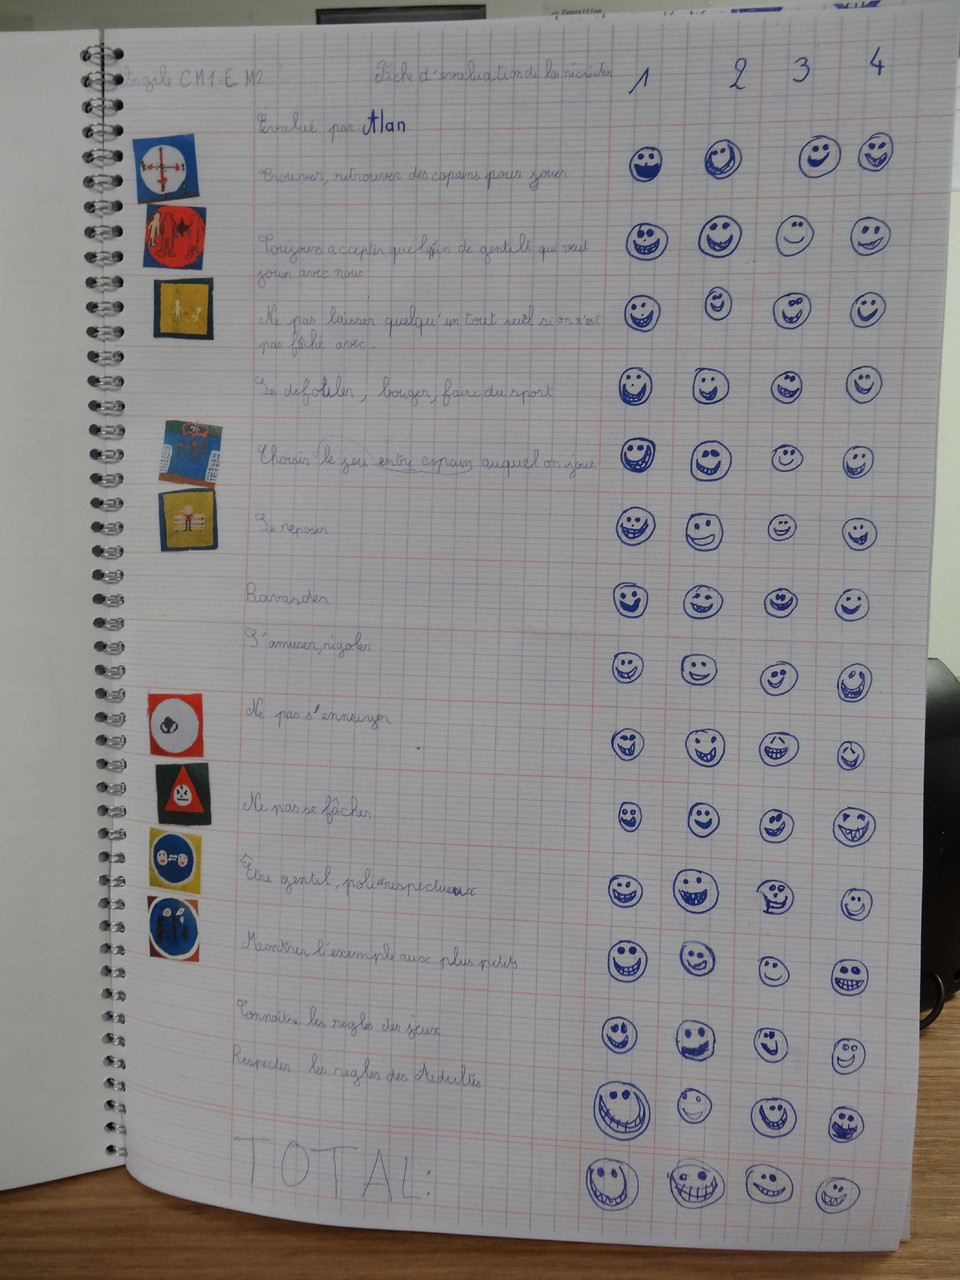 CM1-CM2 Fiche d'évaluation de la récréation 1 2 3 4
Évalué par Alan
Trouver, retrouver des copains pour jouer
Toujours accepter quelqu'un de gentil qui veut
jouer avec nous
Ne pas laisser quelqu'un tout seul si on n'est
pas fâché avec.
Se défouler, bouger, faire du sport
Choisir le jeu entre copain auquel on joue
Se reposer
Bavarder
S'amuser, rigoler
Ne pas s'ennuyer
Ne pas se fâcher
Être gentil, poli respectueux
Montrer l'exemple aux plus petits
Connaître les règles des jeux
Respecter les règles des Adultes
TOTAL: